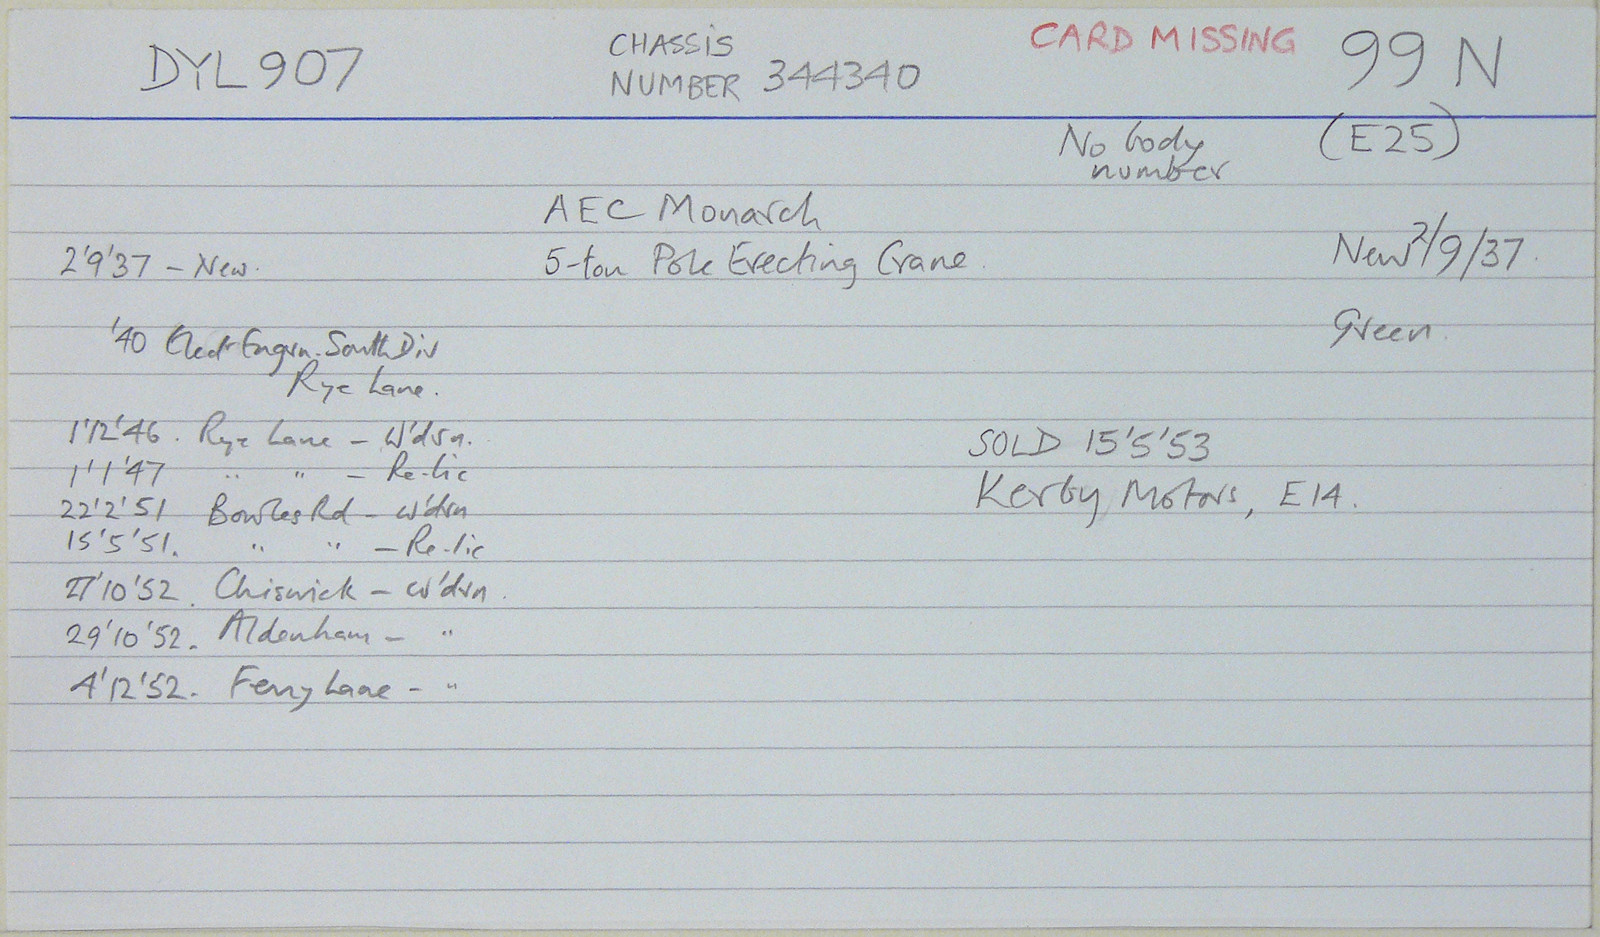 DYL 907
CHASSIS
NUMBER 344340
CARD MISSING
99 N
No body
number
(E25)
AEC Monarch
2'9'37 - New.
5-ton Pole Erecting Crane.
New 2/9/37.
'40 Elect Engrn. South Div
Rye Lane.
Green.
1'12'46. Rye Lane - W'drn.
1'1'47 " " - Re-lic
22'2'51 Bowles Rd - w'drn
15'5'51. " " - Re-lic
27'10'52. Chiswick - w'drn.
29'10'52. Aldenham - "
4'12'52. Ferry Lane - "
SOLD 15'5'53
Kerby Motors, E14.